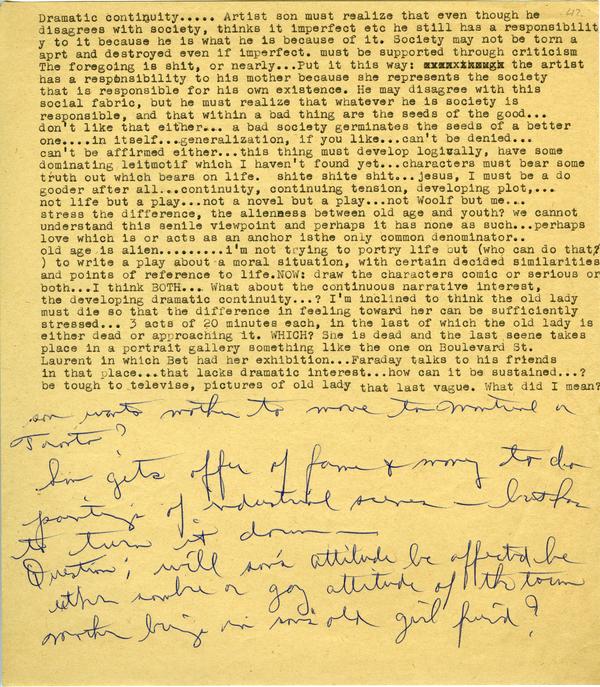 47.
Dramatic continuity..... Artist son must realize that even though he
disagrees with society, thinks it imperfect etc he still has a responsibilit
y to it because he is what he is because of it. Society may not be torn a
aprt and destroyed even if imperfect. must be supported through criticism
The foregoing is shit, or nearly...Put it this way: the artist
has a responsibility to his mother because she represents the society
that is responsible for his own existence. He may disagree with this
social fabric, but he must realize that whatever he is society is
responsible, and that within a bad thing are the seeds of the good...
don't like that either... a bad society germinates the seeds of a better
one....in itself...generalization, if you like...can't be denied...
can't be affirmed either...this thing must develop logically, have some
dominating leitmotif which I haven't found yet...characters must bear some
truth out which bears on life. shite shite shit...jesus, I must be a do
gooder after all...continuity, continuing tension, developing plot,...
not life but a play...not a novel but a play...not Woolf but me...
stress the difference, the alienness between old age and youth? we cannot
understand this senile viewpoint and perhaps it has none as such...perhaps
love which is or acts as an anchor isthe only common denominator..
old age is alien.........i'm not trying to portry life out (who can do that?
) to write a play about a moral situation, with certain decided similarities
and points of reference to life.NOW: draw the characters comic or serious or
both...I think BOTH... What about the continuous narrative interest,
the developing dramatic continuity...? I'm inclined to think the old lady
must die so that the difference in feeling toward her can be sufficiently
stressed... 3 acts of 20 minutes each, in the last of which the old lady is
either dead or approaching it. WHICH? She is dead and the last scene takes
place in a portrait gallery something like the one on Boulevard St.
Laurent in which Bet had her exhibition...Faraday talks to his friends
in that place...that lacks dramatic interest...how can it be sustained...?
be tough to televise, pictures of old lady that last vague. What did I mean?
son wants mother to move to Montreal or
Toronto?
Son gets offer of fame & money to do
paintings of industrial scenes — but has
to turn it down —
Question; will son's attitude be affected be
either sombre or gay attitude of the town
mother brings in son's old girl frind?